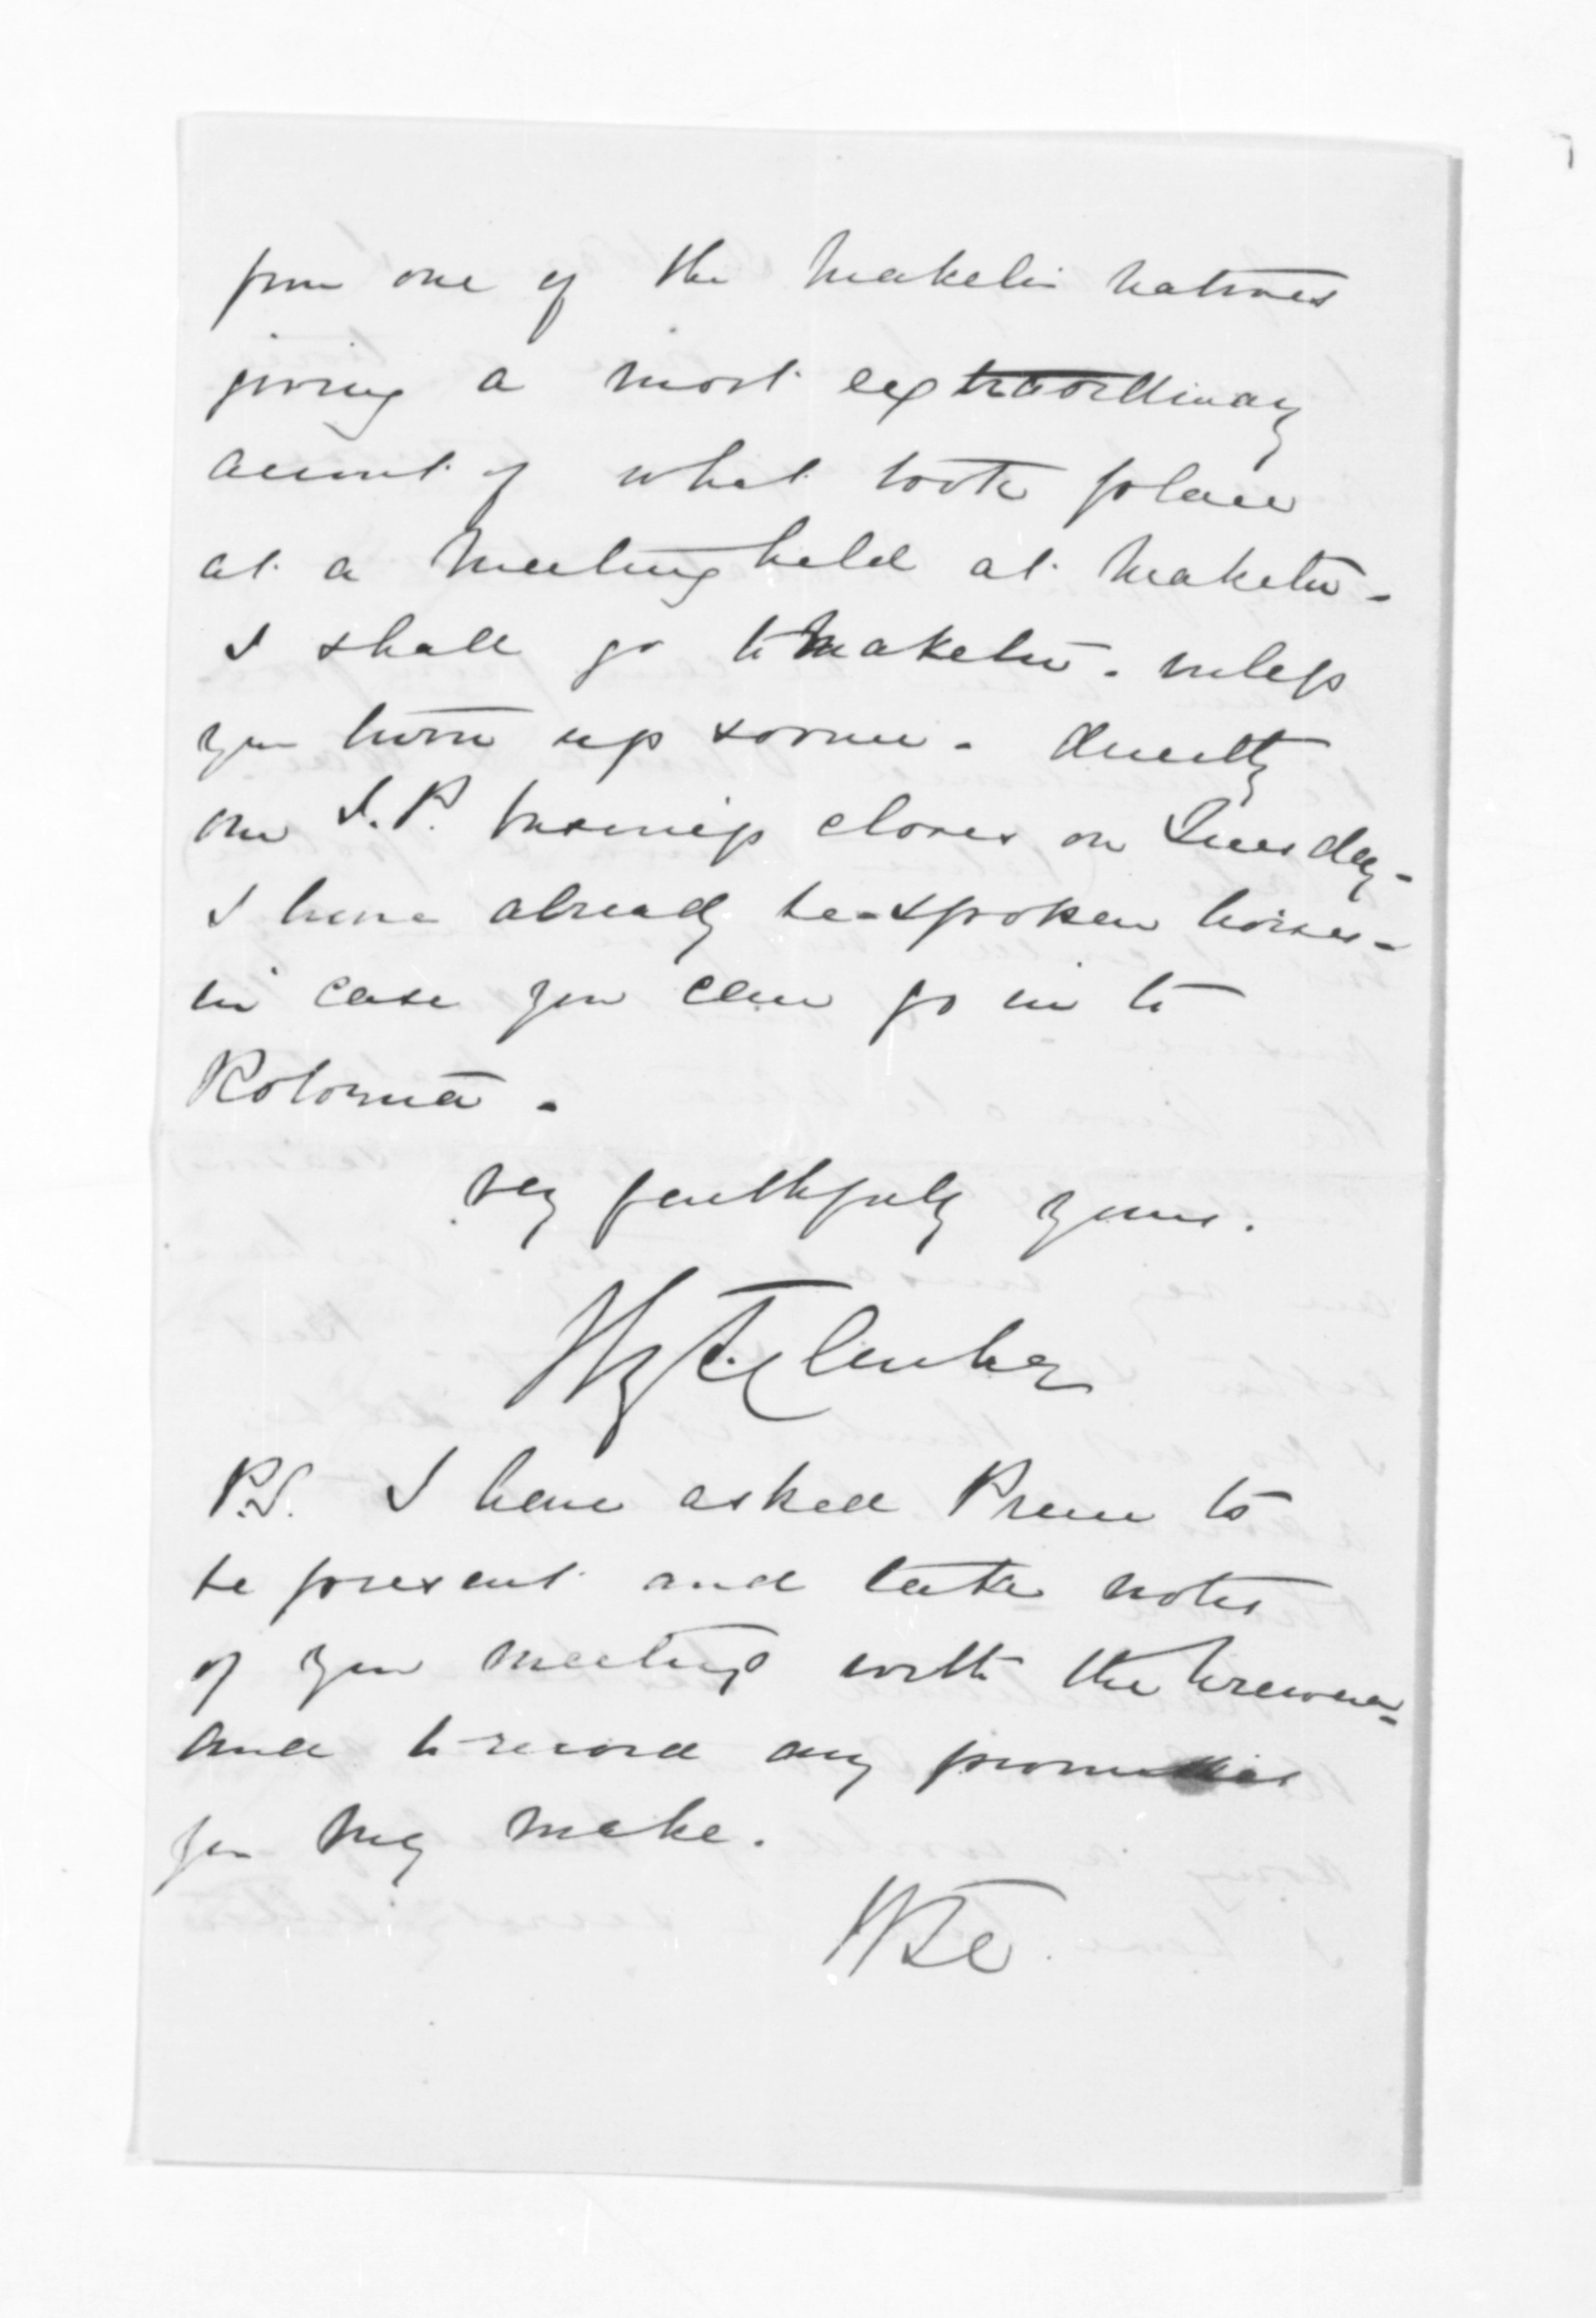 from one of the Maketu natives
giving a most extraordinary
account of what took place
at a meeting held at Maketu -
I shall go to Maketu - unless
you turn up sooner - directly
our J.P. business closes on Tuesday -
I have already be-spoken horses -
in case you can go in to
Rotorua -
Very faithfully yours.
H. T. Clarke
P.S. I have asked to
be present and take notes
of your meeting with the
and to record any promises
you may make.
HTC